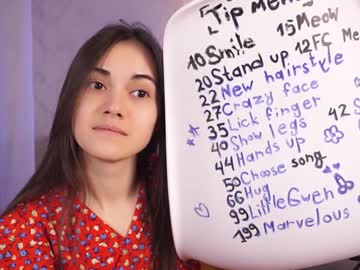 Tip Menu
10 Smile 15 Meow
20 Stand up 12 FC Me
22 New hairstyle
27 Crazy face
35 Lick finger
40 Show legs 42 S
44 Hands up
50 Choose song
66 Hug
99 Little Gwen
199 Marvelous